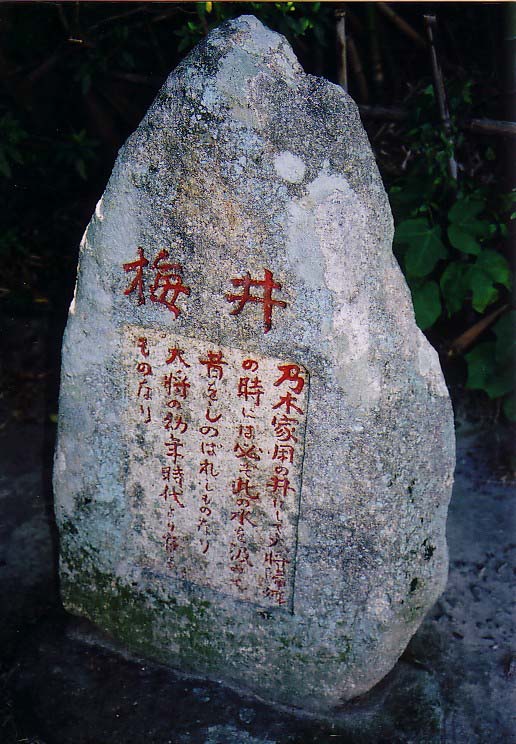 梅井
乃木家用の井にして大将帰郷
の時には必ず此の水を汲みて
昔をしのばれしものなり
大将の幼年時代より
ものなり